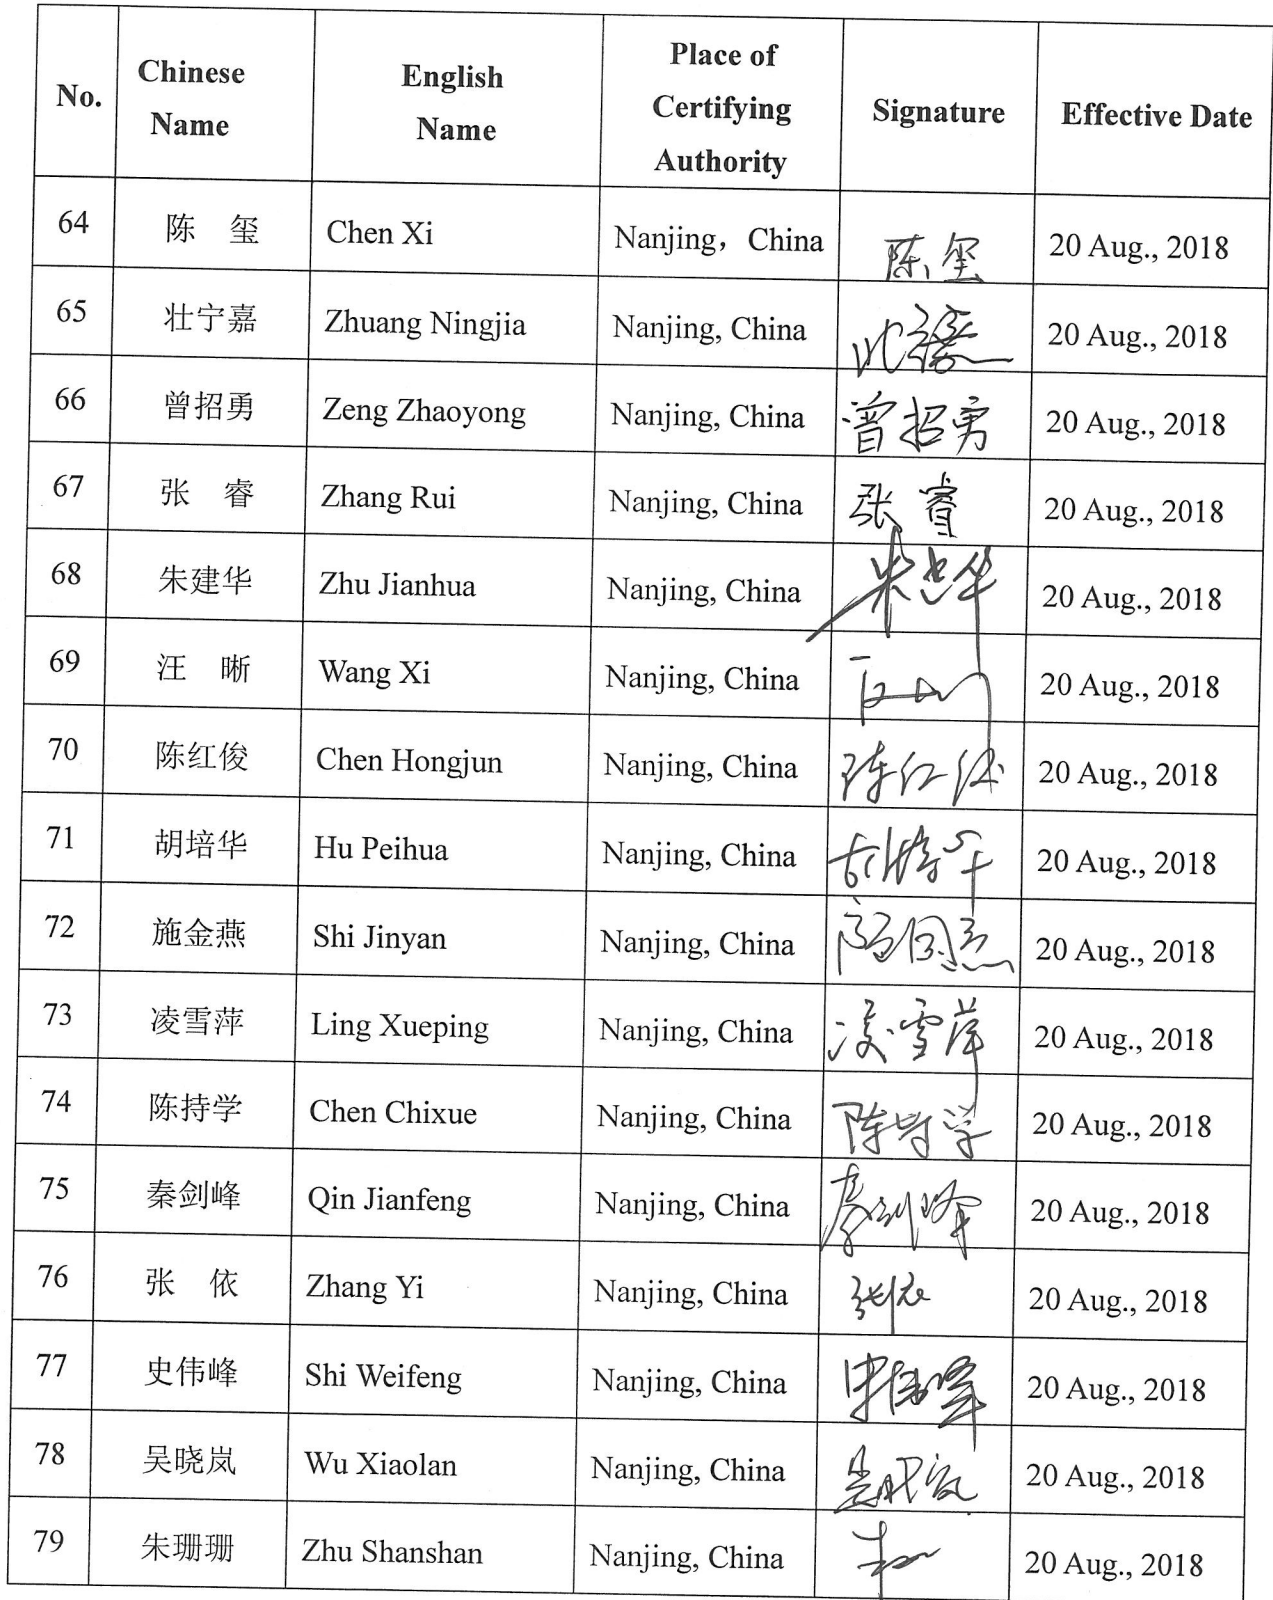 No.
Chinese
Name
English
Name
Place of
Certifying
Authority
Signature
Effective Date
64 陈 玺 Chen Xi Nanjing，China 陈玺 20 Aug., 2018
65 壮宁嘉 Zhuang Ningjia Nanjing, China 20 Aug., 2018
66 曾招勇 Zeng Zhaoyong Nanjing, China 曾招勇 20 Aug., 2018
67 张 睿 Zhang Rui Nanjing, China 张睿 20 Aug., 2018
68 朱建华 Zhu Jianhua Nanjing, China 朱建华 20 Aug., 2018
69 汪 晰 Wang Xi Nanjing, China 20 Aug., 2018
70 陈红俊 Chen Hongjun Nanjing, China 陈红俊 20 Aug., 2018
71 胡培华 Hu Peihua Nanjing, China 胡培华 20 Aug., 2018
72 施金燕 Shi Jinyan Nanjing, China 20 Aug., 2018
73 凌雪萍 Ling Xueping Nanjing, China 凌雪萍 20 Aug., 2018
74 陈持学 Chen Chixue Nanjing, China 陈持学 20 Aug., 2018
75 秦剑峰 Qin Jianfeng Nanjing, China 秦剑峰 20 Aug., 2018
76 张 依 Zhang Yi Nanjing, China 张依 20 Aug., 2018
77 史伟峰 Shi Weifeng Nanjing, China 史伟峰 20 Aug., 2018
78 吴晓岚 Wu Xiaolan Nanjing, China 20 Aug., 2018
79 朱珊珊 Zhu Shanshan Nanjing, China 20 Aug., 2018